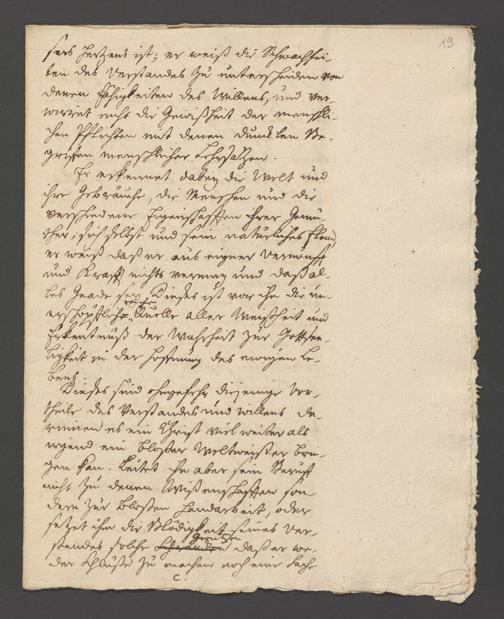 19
sers Hertzens ist; er weiß die Schwachhei-
ten des Verstandes zu unterscheiden von
denen Fähigkeiten des Willens, und ver-
wirret nicht die Gewißheit der menschli-
chen Pflichten mit denen dunklen Be-
griffen menschlicher Lehrsätzen.
Er erkennet dabey die Welt und
ihre Gebräuche, die Menschen und die
verschiedene Eigenschafften ihrer Gemü-
ther; sich selbst und sein natürliches Elend
er weiß daß er aus eigner Vernunfft
und Krafft nichts vermag und daß al-
les Gnade sey. Dieses ist vor ihn die un-
erschöpfliche Quelle aller Weisheit und
Erkentnuß der Wahrheit zur Gottsee-
ligkeit in der Hoffnung des ewigen Le-
bens.
Dieses sind ohngefehr diejenige Vor-
theile des Verstandes und willens da-
rinnen es ein Christ viel weiter als
irgend ein bloßer Weltweißer brin-
gen kan. Leitet ihn aber sein Beruff
nicht zu denen Wißenschafften son-
dern zur bloßen Handarbeit, oder
setzet ihm die Blödigkeit seines Ver-
standes solche Grentzen daß er we-
der Schlüße zu machen noch eine Sache